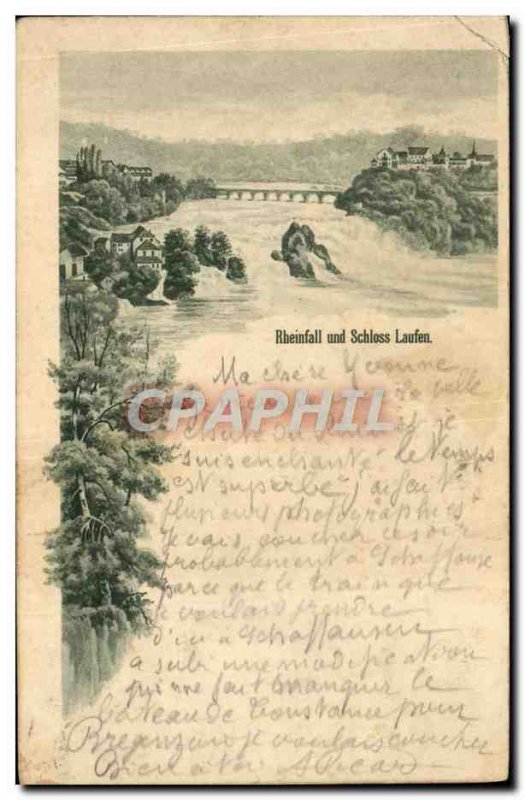 Rheinfall und Schloss Laufen.
Ma chère Yvonne
la belle
CARPHIL
chute du je
suis enchanté le temps
est superbe j'ai fait
plusieurs photographies
je vais coucher ce soir
probablement à Schaffouse
parce que le train que
je voulais prendre
d'ici à Schaffausen
a subi une modification
qui me fait manquer le
bateau de Constance pour
je voulais coucher
Bien à toi A Picard